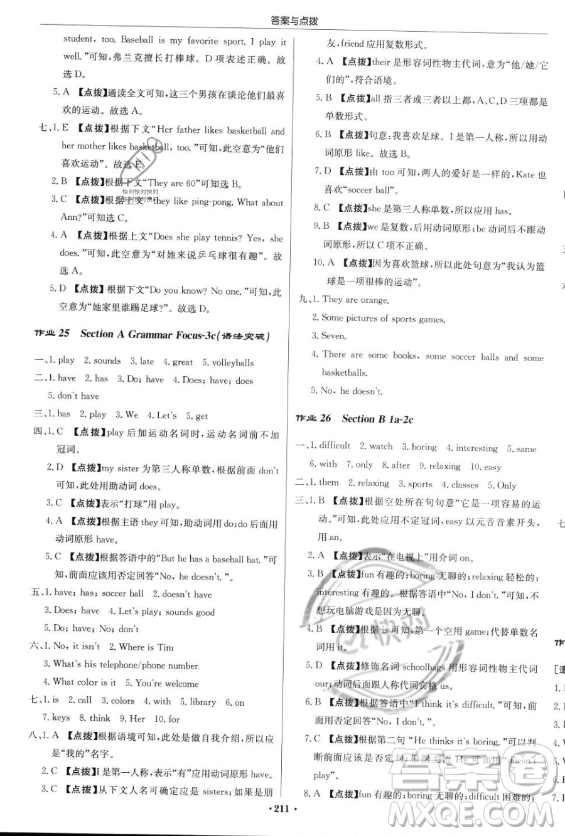 答案与点拨
student, too. Baseball is my favorite sport. I play it
well.”可知，弗兰克擅长打棒球。D项表达有误。故
选D。
5. A 【点拨】通读全文可知，这三个男孩在谈论他们最喜
欢的运动。故选A。
七、1. E 【点拨】根据下文“Her father likes basketball and
her mother likes basketball, too.”可知，此空意为“他们
喜欢运动”。故选E。
2. B 【点拨】根据下文“They are 60”可知选B。
3. C 【点拨】根据下文“they like ping-pong. What about
Ann?”可知选C。
4. A 【点拨】根据上文“Does she play tennis? Yes, she
does.”可知，此空意为“对她来说乒乓球很有趣”。故
选A。
5. D 【点拨】根据下文“Do you know? No one.”可知，此
空意为“她家里谁踢足球？”故选D。
作业 25 Section A Grammar Focus-3c(语法突破)
一、1. play 2. sounds 3. late 4. great 5. volleyballs
二、1. have 2. has 3. Do; have 4. Does; have
5. don't have
三、1. has 2. play 3. We 4. has 5. have
四、1. C 【点拨】play后加运动名词时，运动名词前不加
冠词。
2. A 【点拨】my sister为第三人称单数，根据前面don't
可知，此处用助动词does。
3. C 【点拨】表示“打球”用play。
4. A 【点拨】根据主语they可知，助动词用do;do后面用
动词原形have。
5. C 【点拨】根据答语中的“But he has a baseball bat.”可
知，前面应该用否定回答“No, he doesn't.”。
五、1. have; has; soccer ball 2. Does; have; does
3. doesn't have 4. Let's play; sounds good
5. Do; have; No; don't
六、1. No, it isn't 2. Where is Tim
3. What's his telephone/phone number
4. What color is it 5. You're welcome
七、1. is 2. call 3. colors 4. with 5. library 6. on
7. keys 8. think 9. Her 10. for
八、1. A 【点拨】根据语境可知，此处是做自我介绍，所以应
是“我的”名字。
2. D 【点拨】I是第一人称，表示“有”应用动词原形have。
3. C 【点拨】从下文人名可知，此处意为朋友，如果是朋
友，friend应用复数形式。
4. A 【点拨】their是形容词性物主代词，意为“他（她、
它）们的”，符合语境。
5. B 【点拨】all指三者或三者以上都，A、C、D三项都为
单数形式。
6. B 【点拨】句意：我喜欢足球。I是第一人称，所以用动
词原形like。
7. D 【点拨】由too可知，两人的爱好是一样的，Kate也
喜欢“soccer ball”。
8. C 【点拨】she是第三人称单数，所以动词应用has。
9. B 【点拨】we是复数，后应用动词原形；do后不跟动
词原形，所以应用play。
10. A 【点拨】因为喜欢篮球，所以此处句意为“我认为篮
球是一项很棒的运动”。
九、1. They are orange.
2. Some pictures of sports games.
3. Seven.
4. There are some books, some soccer balls and some
basketballs.
5. No, he doesn't.
作业 26 Section B 1a-2c
一、1. difficult 2. watch 3. boring 4. interesting 5. same
6. with 7. only 8. relaxing 9. easy
二、1. them 2. relaxing 3. sports 4. classes 5. Only
三、1. B 【点拨】根据空处所在句句意“它是一项容易的运
动。”可知，此处应用不定冠词，easy以元音音素开头，
用an。
2. A 【点拨】表示“在电视上”用介词on。
3. A 【点拨】fun有趣的；boring无聊的；relaxing轻松的；
interesting有趣的。根据后句“我不喜欢它们”可知，
玩电脑游戏我是因为无聊。
4. B 【点拨】根据is可知用单数，a computer game，代替单数名
词用it。
5. D 【点拨】修饰名词schoolbags用形容词性物主代词
our;动词后面跟人称代词宾格us。
6. C 【点拨】根据答语中“I think it's difficult.”可知，不
应用肯定回答，应用否定回答。
7. D 【点拨】根据第二句“He thinks it's boring.”可以判
断前面应该为否定形式。
8. D 【点拨】fun有趣的；boring无聊的；
difficult困难的
·211·